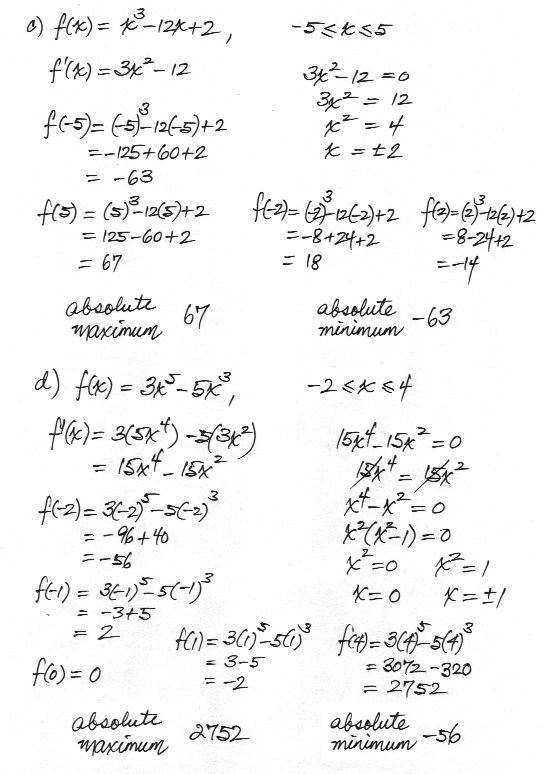 c) f(x) = x³-12x+2, -5≤x≤5
f'(x) = 3x²-12
3x²-12 = 0
3x² = 12
x² = 4
x = ±2
f(-5) = (-5)³-12(-5)+2
= -125+60+2
= -63
f(5) = (5)³-12(5)+2
= 125-60+2
= 67
f(-2) = (-2)³-12(-2)+2
= -8+24+2
= 18
f(2) = (2)³-12(2)+2
= 8-24+2
= -14
absolute maximum 67
absolute minimum -63
d) f(x) = 3x⁵-5x³, -2≤x≤4
f'(x) = 3(5x⁴)-5(3x²)
= 15x⁴-15x²
15x⁴-15x² = 0
15x⁴ = 15x²
x⁴-x² = 0
x²(x²-1) = 0
x² = 0 x² = 1
x = 0 x = ±1
f(-2) = 3(-2)⁵-5(-2)³
= -96+40
= -56
f(-1) = 3(-1)⁵-5(-1)³
= -3+5
= 2
f(0) = 0
f(1) = 3(1)⁵-5(1)³
= 3-5
= -2
f(4) = 3(4)⁵-5(4)³
= 3072-320
= 2752
absolute maximum 2752
absolute minimum -56